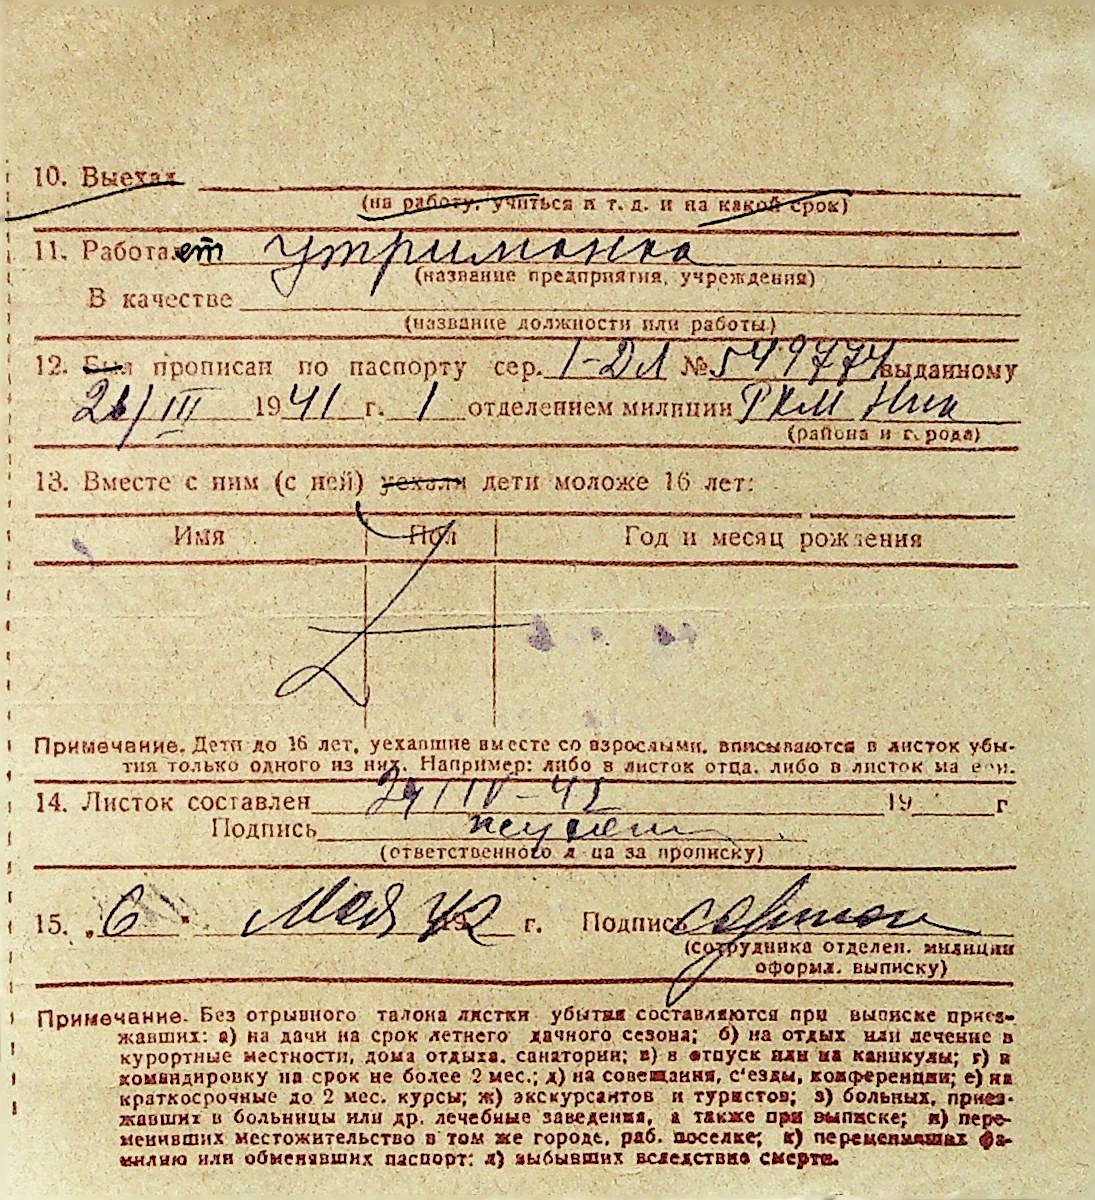 10. Выехал
(на работу, учиться и т. д. и на какой срок)
11. Работает утриманка
(название предприятия, учреждения)
В качестве
(название должности или работы)
12. Был прописан по паспорту сер. I-ДЛ № 549774 выданному
26/III 1941 г. 1 отделением милиции РКМ Ник
(района и города)
13. Вместе с ним (с ней) уехали дети моложе 16 лет:
Имя Пол Год и месяц рождения
Примечание. Дети до 16 лет, уехавшие вместе со взрослыми, вписываются в листок убы-
тия только одного из них. Например: либо в листок отца, либо в листок матери.
14. Листок составлен 29/IV-42 19 г
Подпись
(ответственного лица за прописку)
15. „6" Мая 42 г. Подпись
(сотрудника отделен. милиции
оформл. выписку)
Примечание. Без отрывного талона листки убытия составляются при выписке приез-
жавших: а) на дачи на срок летнего дачного сезона; б) на отдых или лечение в
курортные местности, дома отдыха, санатории; в) в отпуск или на каникулы; г) в
командировку на срок не более 2 мес.; д) на совещания, с'езды, конференции; е) на
краткосрочные до 2 мес. курсы; ж) экскурсантов и туристов; з) больных, приез-
жавших в больницы или др. лечебные заведения, а также при выписке; и) пере-
менивших местожительство в том же городе, раб. поселке; к) переменивших фа-
милию или обменявших паспорт; л) выбывших вследствие смерти.